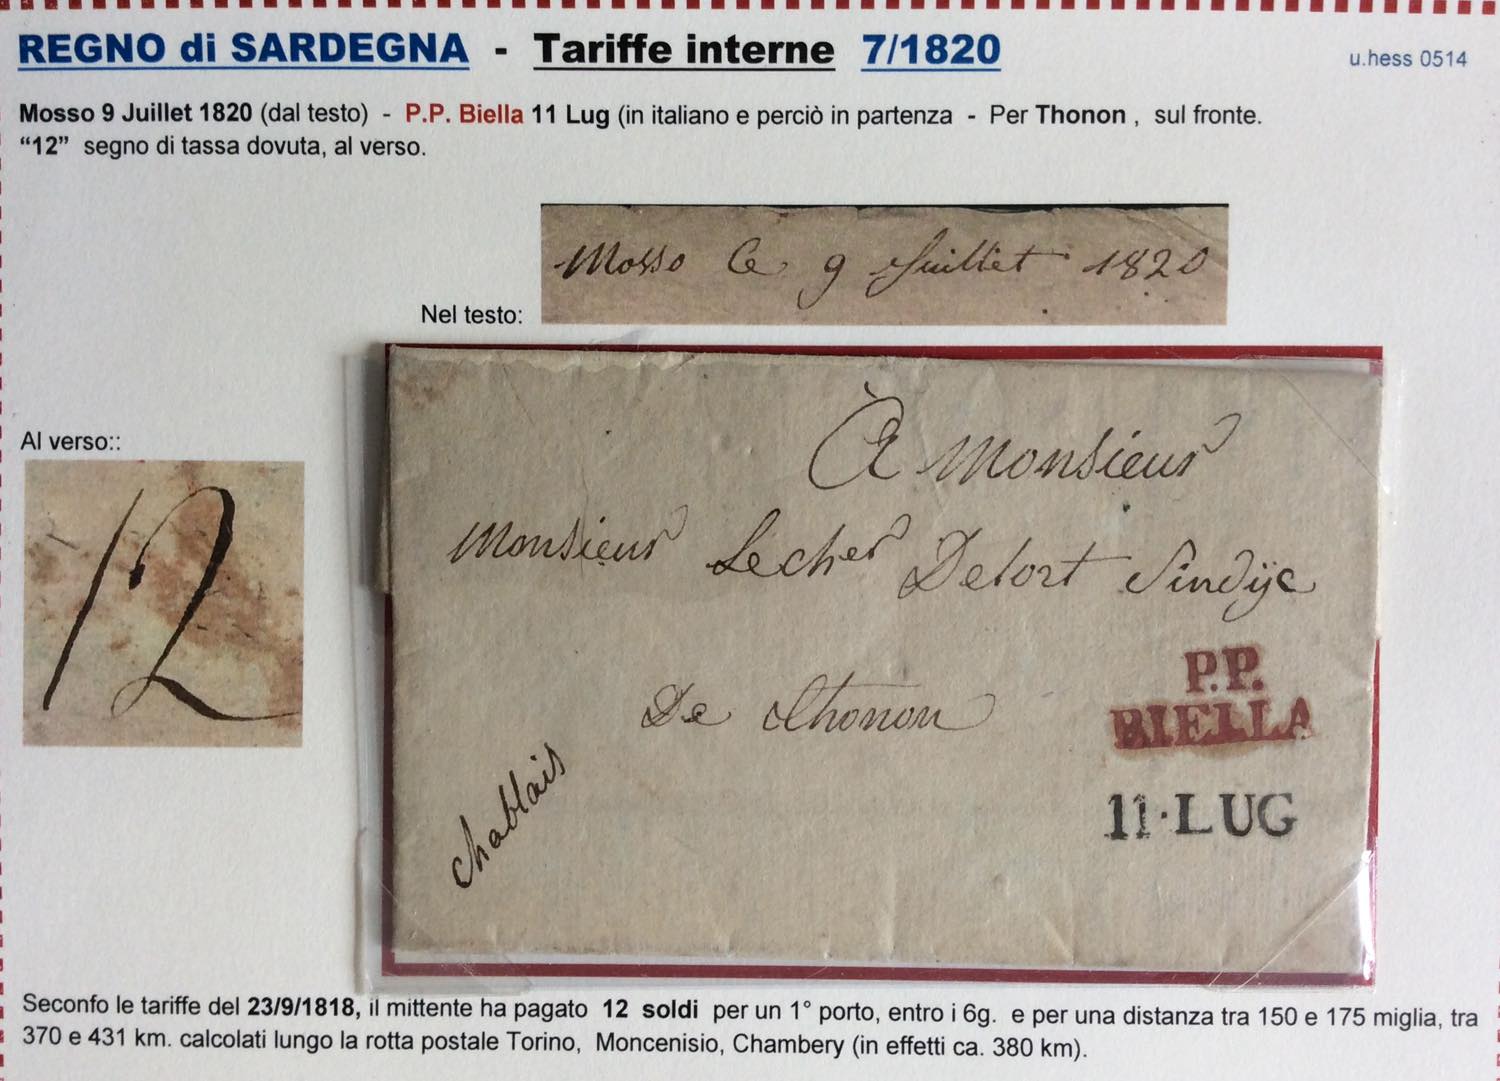 REGNO di SARDEGNA - Tariffe interne 7/1820
u.hess 0514
Mosso 9 Juillet 1820 (dal testo) - P.P. Biella 11 Lug (in italiano e perciò in partenza - Per Thonon , sul fronte.
“12” segno di tassa dovuta, al verso.
Nel testo:
Mosso Ce 9 Juillet 1820
Al verso::
12
À Monsieur
Monsieur Lecher Delort Sindÿc
De Thonon
Chablais
P.P.
BIELLA
11·LUG
Seconfo le tariffe del 23/9/1818, il mittente ha pagato 12 soldi per un 1° porto, entro i 6g. e per una distanza tra 150 e 175 miglia, tra
370 e 431 km. calcolati lungo la rotta postale Torino, Moncenisio, Chambery (in effetti ca. 380 km).